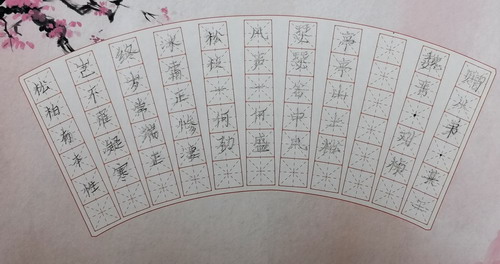 赠从弟·其二
魏晋·刘桢
亭亭山上松
瑟瑟谷中风
风声一何盛
松枝一何劲
冰霜正惨凄
终岁常端正
岂不罹凝寒
松柏有本性